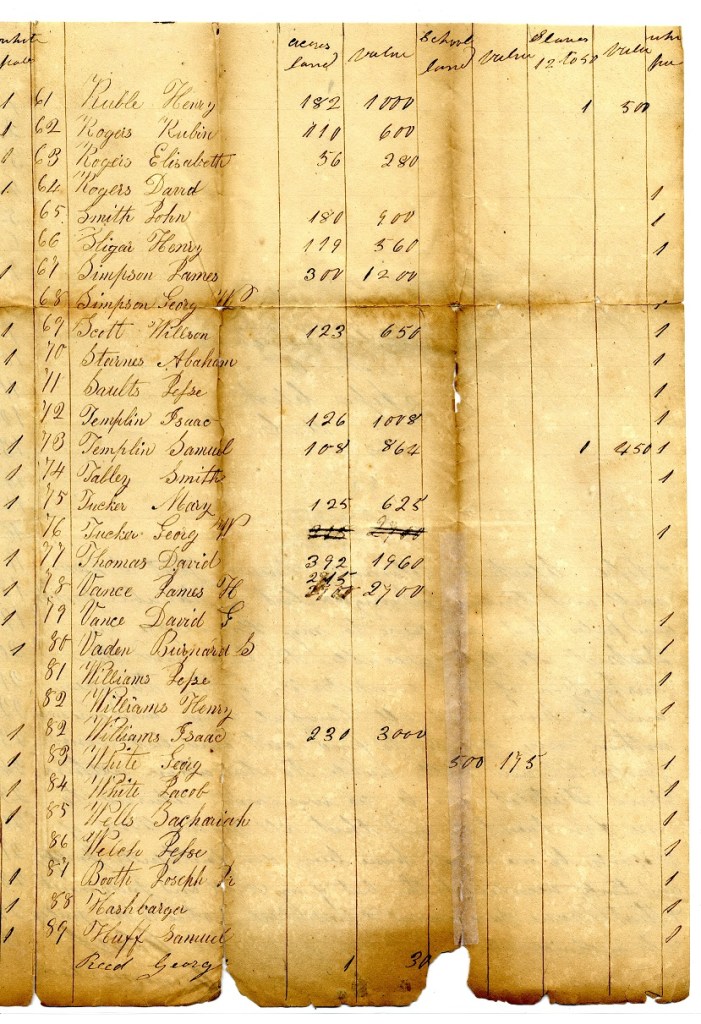 white acres value School value Slaves value whi
pole land land 12 to 50 po
1 61 Ruble Henry 182 1000 1 500
1 62 Rogers Rubin 110 600
1 63 Rogers Elisabeth 56 280
1 64 Rogers David 1
65 Smith John 180 900 1
66 Sligar Henry 119 560 1
1 67 Simpson James 300 1200
68 Simpson Georg W 1
1 69 Scott Willson 123 650 1
1 70 Starnes Abaham 1
1 71 Saults Jesse 1
72 Templin Isaac 126 1008 1
1 73 Templin Samuel 108 864 1 450 1
1 74 Talley Smith 1
1 75 Tucker Mary 125 625
76 Tucker Georg W 1
1 77 Thomas David 392 1960
1 78 Vance James H 2700
1 79 Vance David G 1
1 80 Vaden Burnard S 1
81 Williams Jesse 1
82 Williams Henry 1
1 82 Williams Isaac 230 3000
1 83 White Georg 500 175 1
1 84 White Jacob 1
1 85 Wells Zachariah 1
86 Welch Jesse 1
1 87 Booth Joseph Jr 1
1 88 Hashbarger 1
1 89 Huff Samuel 1
Reed Georg 1 30